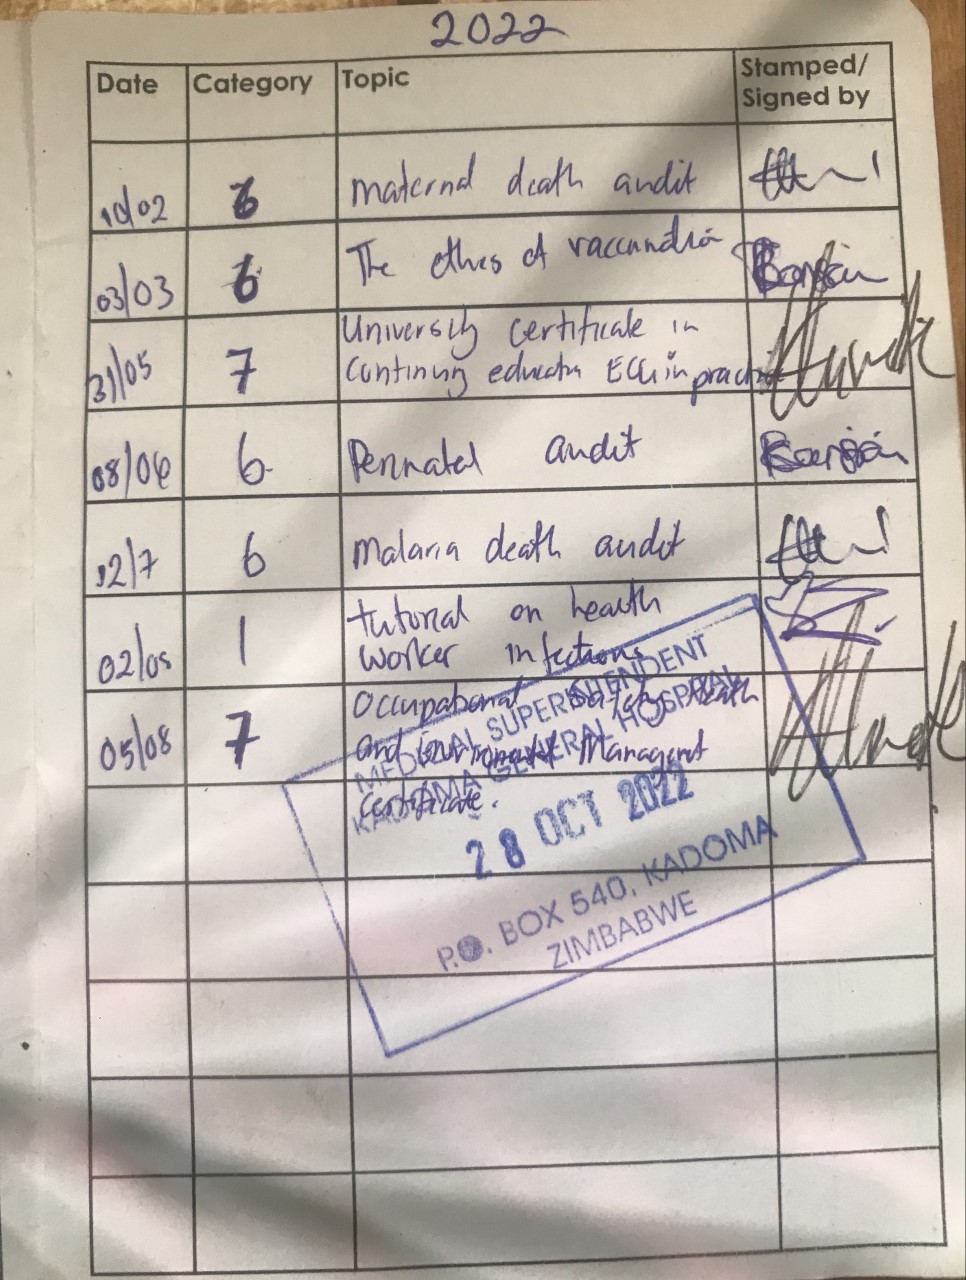 2022
Date Category Topic Stamped/
Signed by
10/02 6 maternal death audit
03/03 6 The ethics of vaccination
31/05 7 University certificate in
Continuing education ECG in practice
08/06 6 Perinatal audit
12/7 6 Malaria death audit
02/08 1 tutorial on health
worker infections
05/08 7 Occupational Safety Health
and Environmental Managent
Certificate.
MEDICAL SUPERINTENDENT
KADOMA GENERAL HOSPITAL
28 OCT 2022
P.O. BOX 540, KADOMA
ZIMBABWE